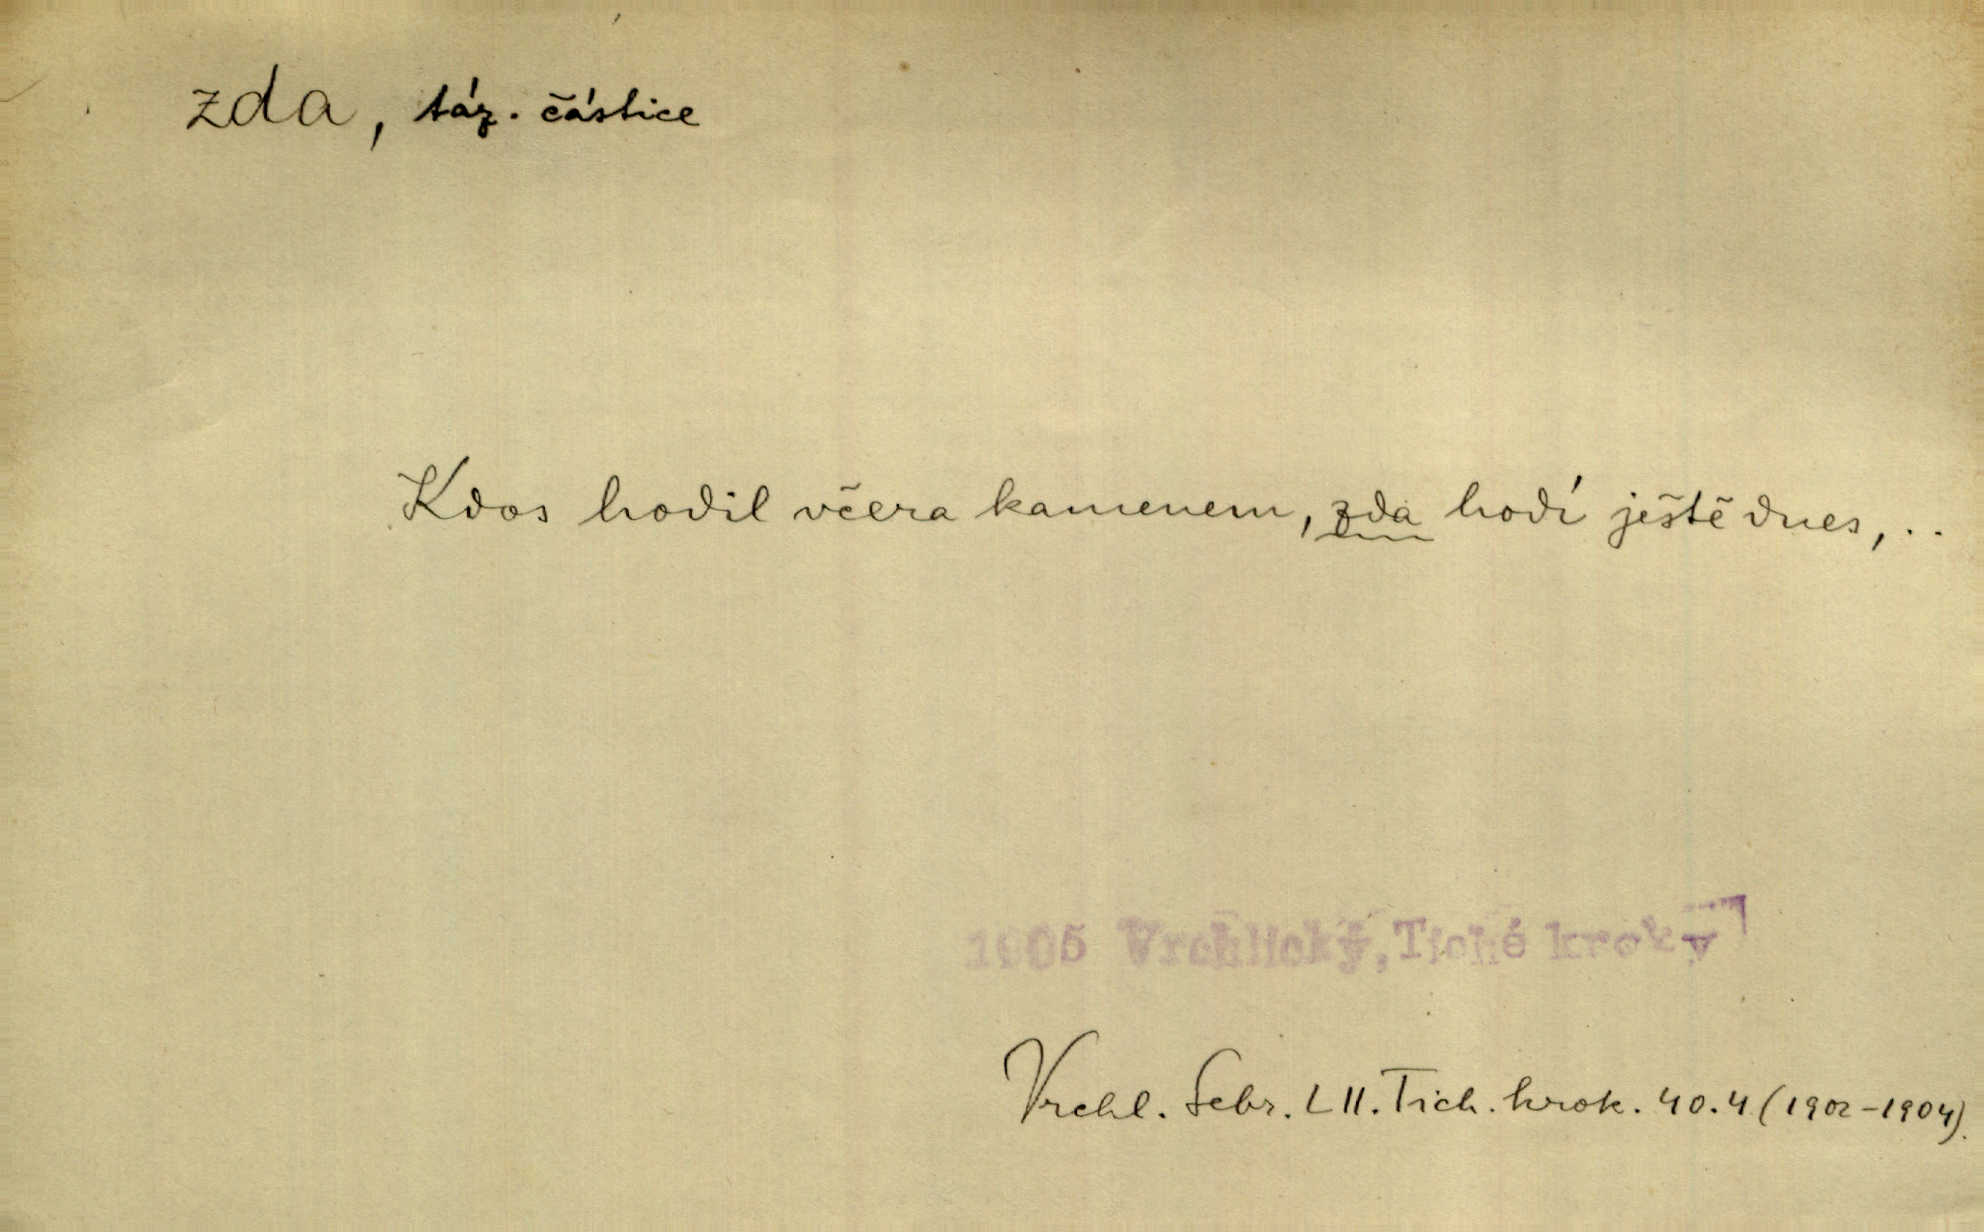 zda, táz. částice
Kdos hodil včera kamenem, zda hodí ještě dnes, ..
1905 Vrchlický, Tiché kroky
Vrchl. Sebr. LII. Tich. krok. 40.4 (1902-1904).